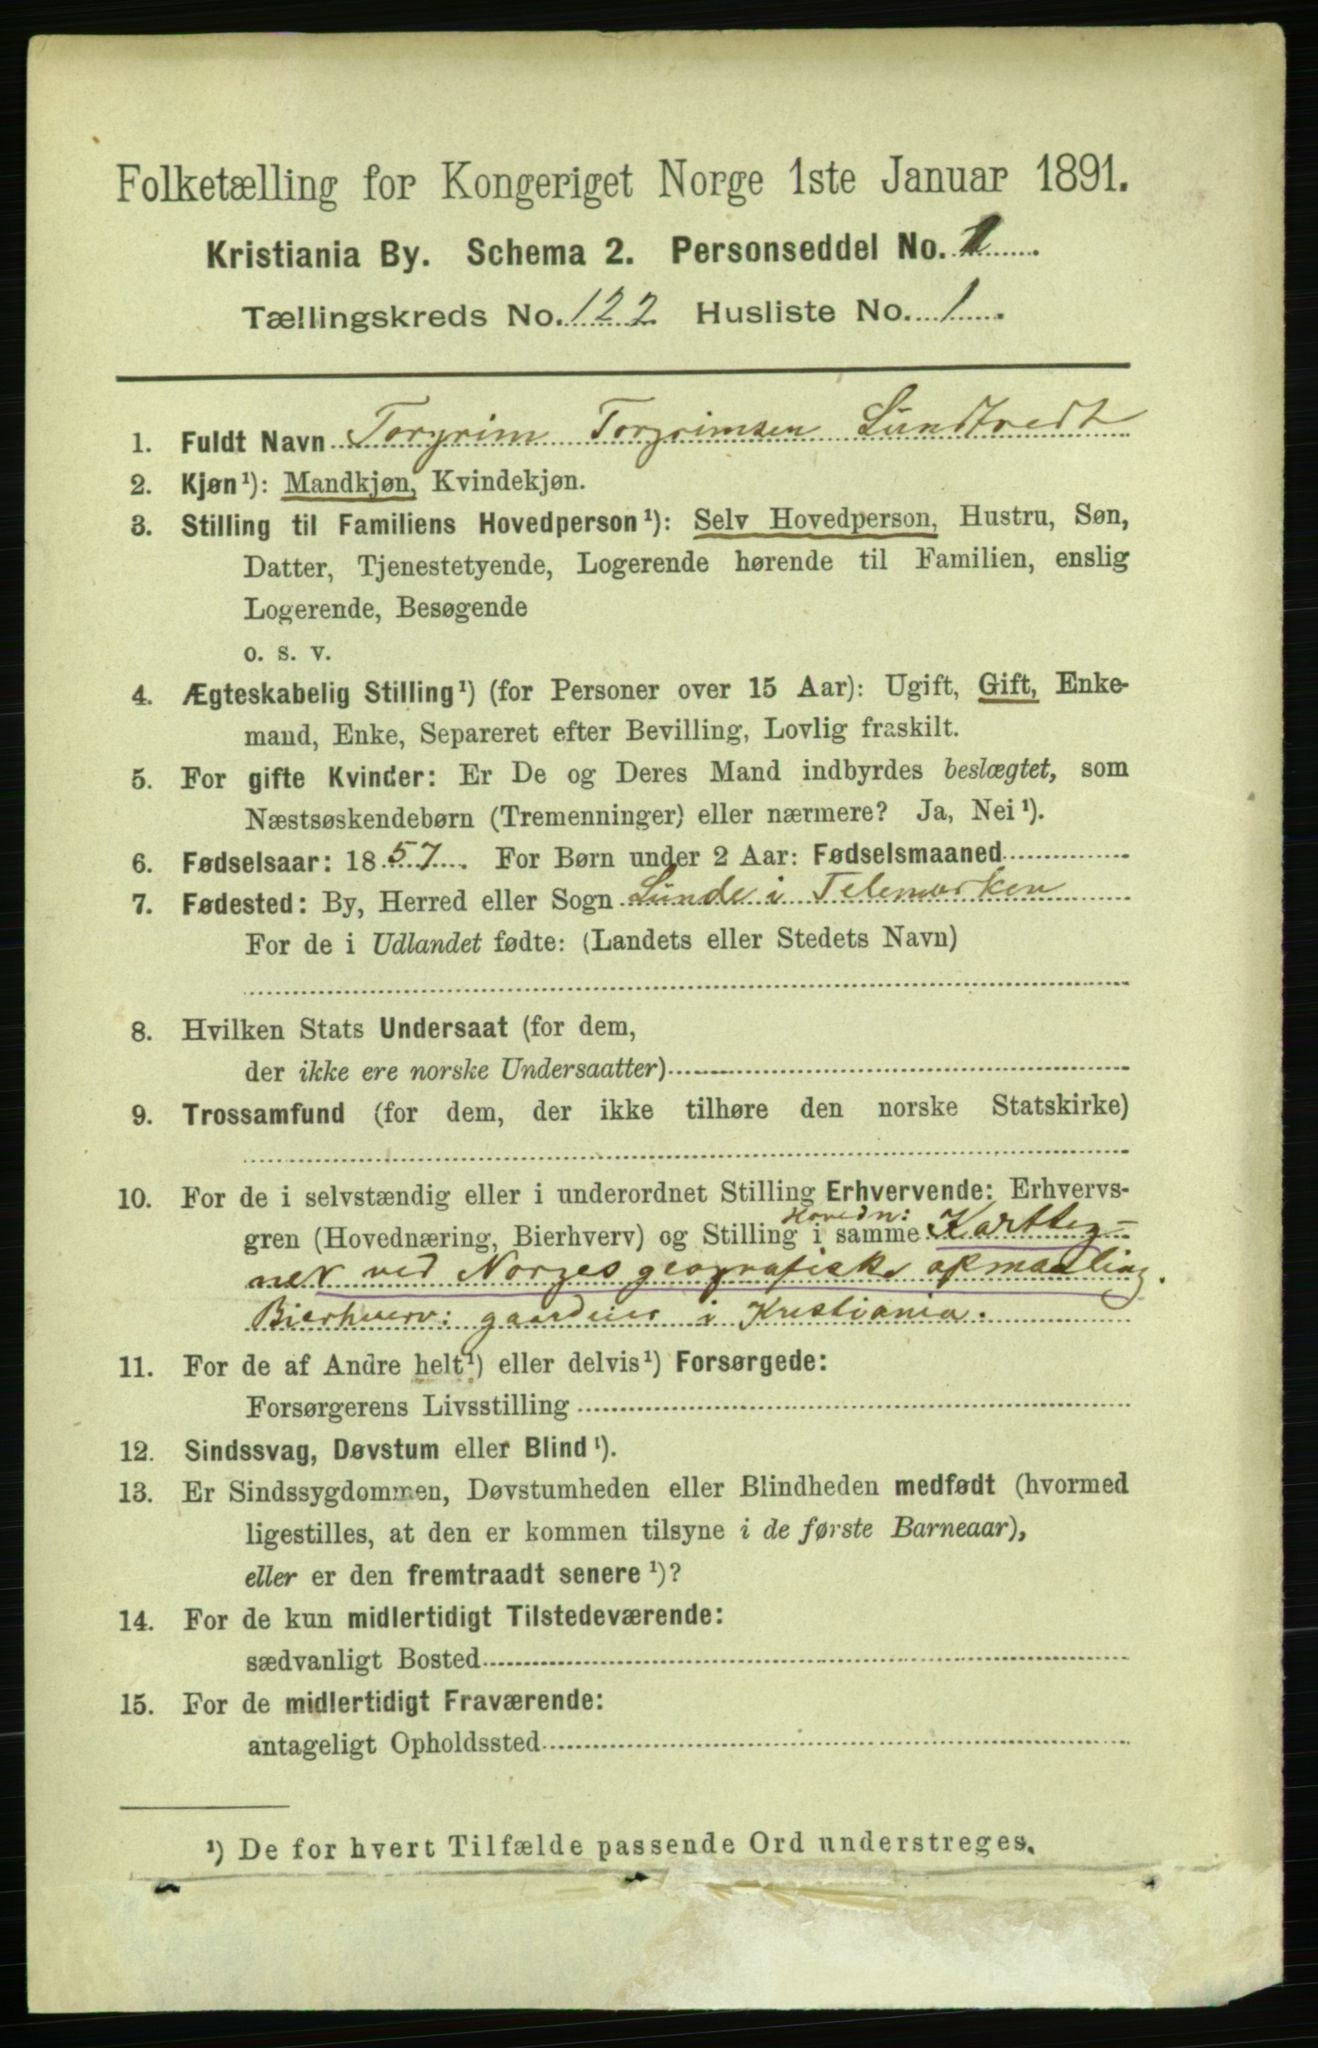 Folketælling for Kongeriget Norge 1ste Januar 1891.
Kristiania By. Schema 2. Personseddel No. 1
Tællingskreds No. 122 Husliste No. 1
1. Fuldt Navn Torgrim Torgrimsen Lundtvedt
2. Kjøn¹): Mandkjøn, Kvindekjøn.
3. Stilling til Familiens Hovedperson¹): Selv Hovedperson, Hustru, Søn,
Datter, Tjenestetyende, Logerende hørende til Familien, enslig
Logerende, Besøgende
o. s. v.
4. Ægteskabelig Stilling¹) (for Personer over 15 Aar): Ugift, Gift, Enke-
mand, Enke, Separeret efter Bevilling, Lovlig fraskilt.
5. For gifte Kvinder: Er De og Deres Mand indbyrdes beslægtet, som
Næstsøskendebørn (Tremenninger) eller nærmere? Ja, Nei¹).
6. Fødselsaar: 1857. For Børn under 2 Aar: Fødselsmaaned
7. Fødested: By, Herred eller Sogn Lunde i Telemarken
For de i Udlandet fødte: (Landets eller Stedets Navn)
8. Hvilken Stats Undersaat (for dem,
der ikke ere norske Undersaatter)
9. Trossamfund (for dem, der ikke tilhøre den norske Statskirke)
10. For de i selvstændig eller i underordnet Stilling Erhvervende: Erhvervs-
Hovedn:
gren (Hovednæring, Bierhverv) og Stilling i samme Kartteg-
ner ved Norges geografiske opmaaling.
Bierhverv: gaardeier i Kristiania.
11. For de af Andre helt¹) eller delvis¹) Forsørgede:
Forsørgerens Livsstilling
12. Sindssvag, Døvstum eller Blind¹).
13. Er Sindssygdommen, Døvstumheden eller Blindheden medfødt (hvormed
ligestilles, at den er kommen tilsyne i de første Barneaar),
eller er den fremtraadt senere¹)?
14. For de kun midlertidigt Tilstedeværende:
sædvanligt Bosted
15. For de midlertidigt Fraværende:
antageligt Opholdssted
¹) De for hvert Tilfælde passende Ord understreges.